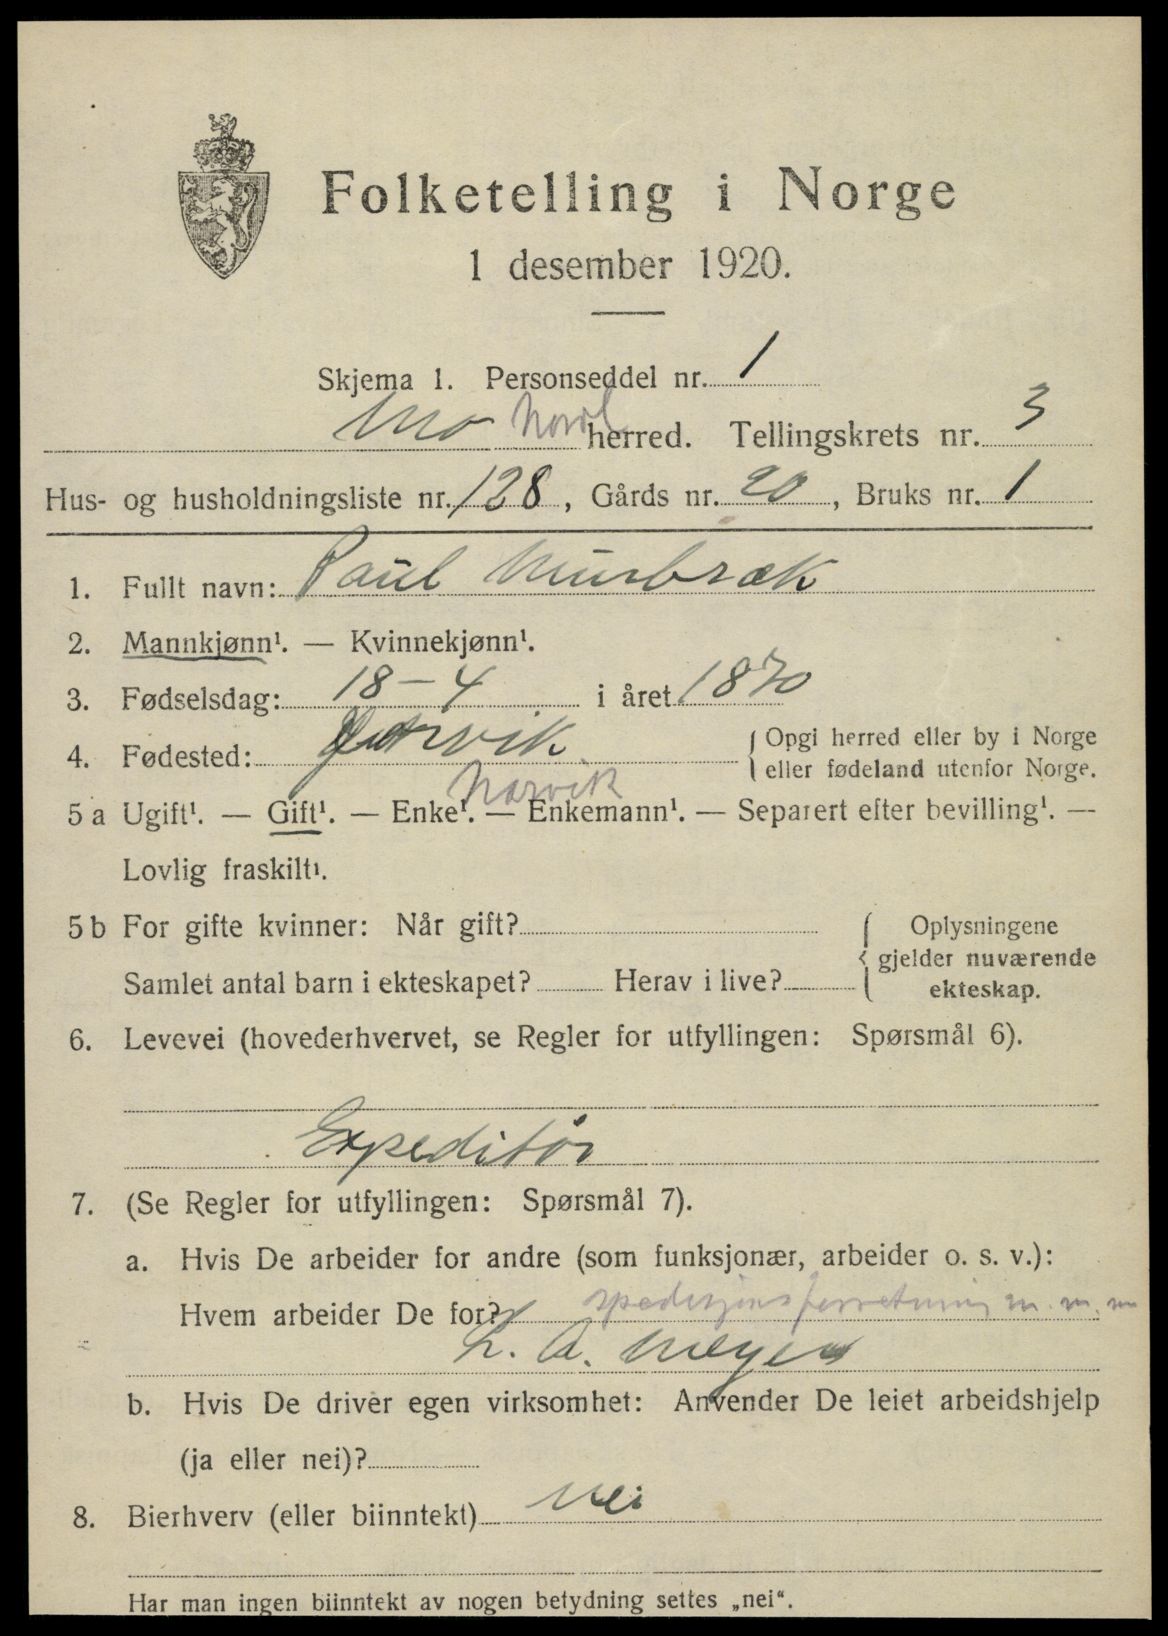 Folketelling i Norge
1 desember 1920.
Skjema 1. Personseddel nr. 1
Mo Nordl herred. Tellingskrets nr. 3
Hus- og husholdningsliste nr. 128, Gårds nr. 20, Bruks nr. 1
1. Fullt navn: Paul Murbræk
2. Mannkjønn¹. — Kvinnekjønn¹.
3. Fødselsdag: 18-4 i året 1870
4. Fødested: {Opgi herred eller by i Norge
eller fødeland utenfor Norge.
Narvik
5 a Ugift¹. — Gift¹. — Enke¹. — Enkemann¹. — Separert efter bevilling¹. —
Lovlig fraskilt¹.
5 b For gifte kvinner: Når gift? { Oplysningene
gjelder nuværende
Samlet antal barn i ekteskapet? Herav i live? ekteskap.
6. Levevei (hovederhvervet, se Regler for utfyllingen: Spørsmål 6).
Expeditør
7. (Se Regler for utfyllingen: Spørsmål 7).
a. Hvis De arbeider for andre (som funksjonær, arbeider o. s. v.):
Hvem arbeider De for? spedisjonsforretning m. m. m
L. A. Meyer
b. Hvis De driver egen virksomhet: Anvender De leiet arbeidshjelp
(ja eller nei)?
8. Bierhverv (eller biinntekt) nei
Har man ingen biinntekt av nogen betydning settes „nei“.